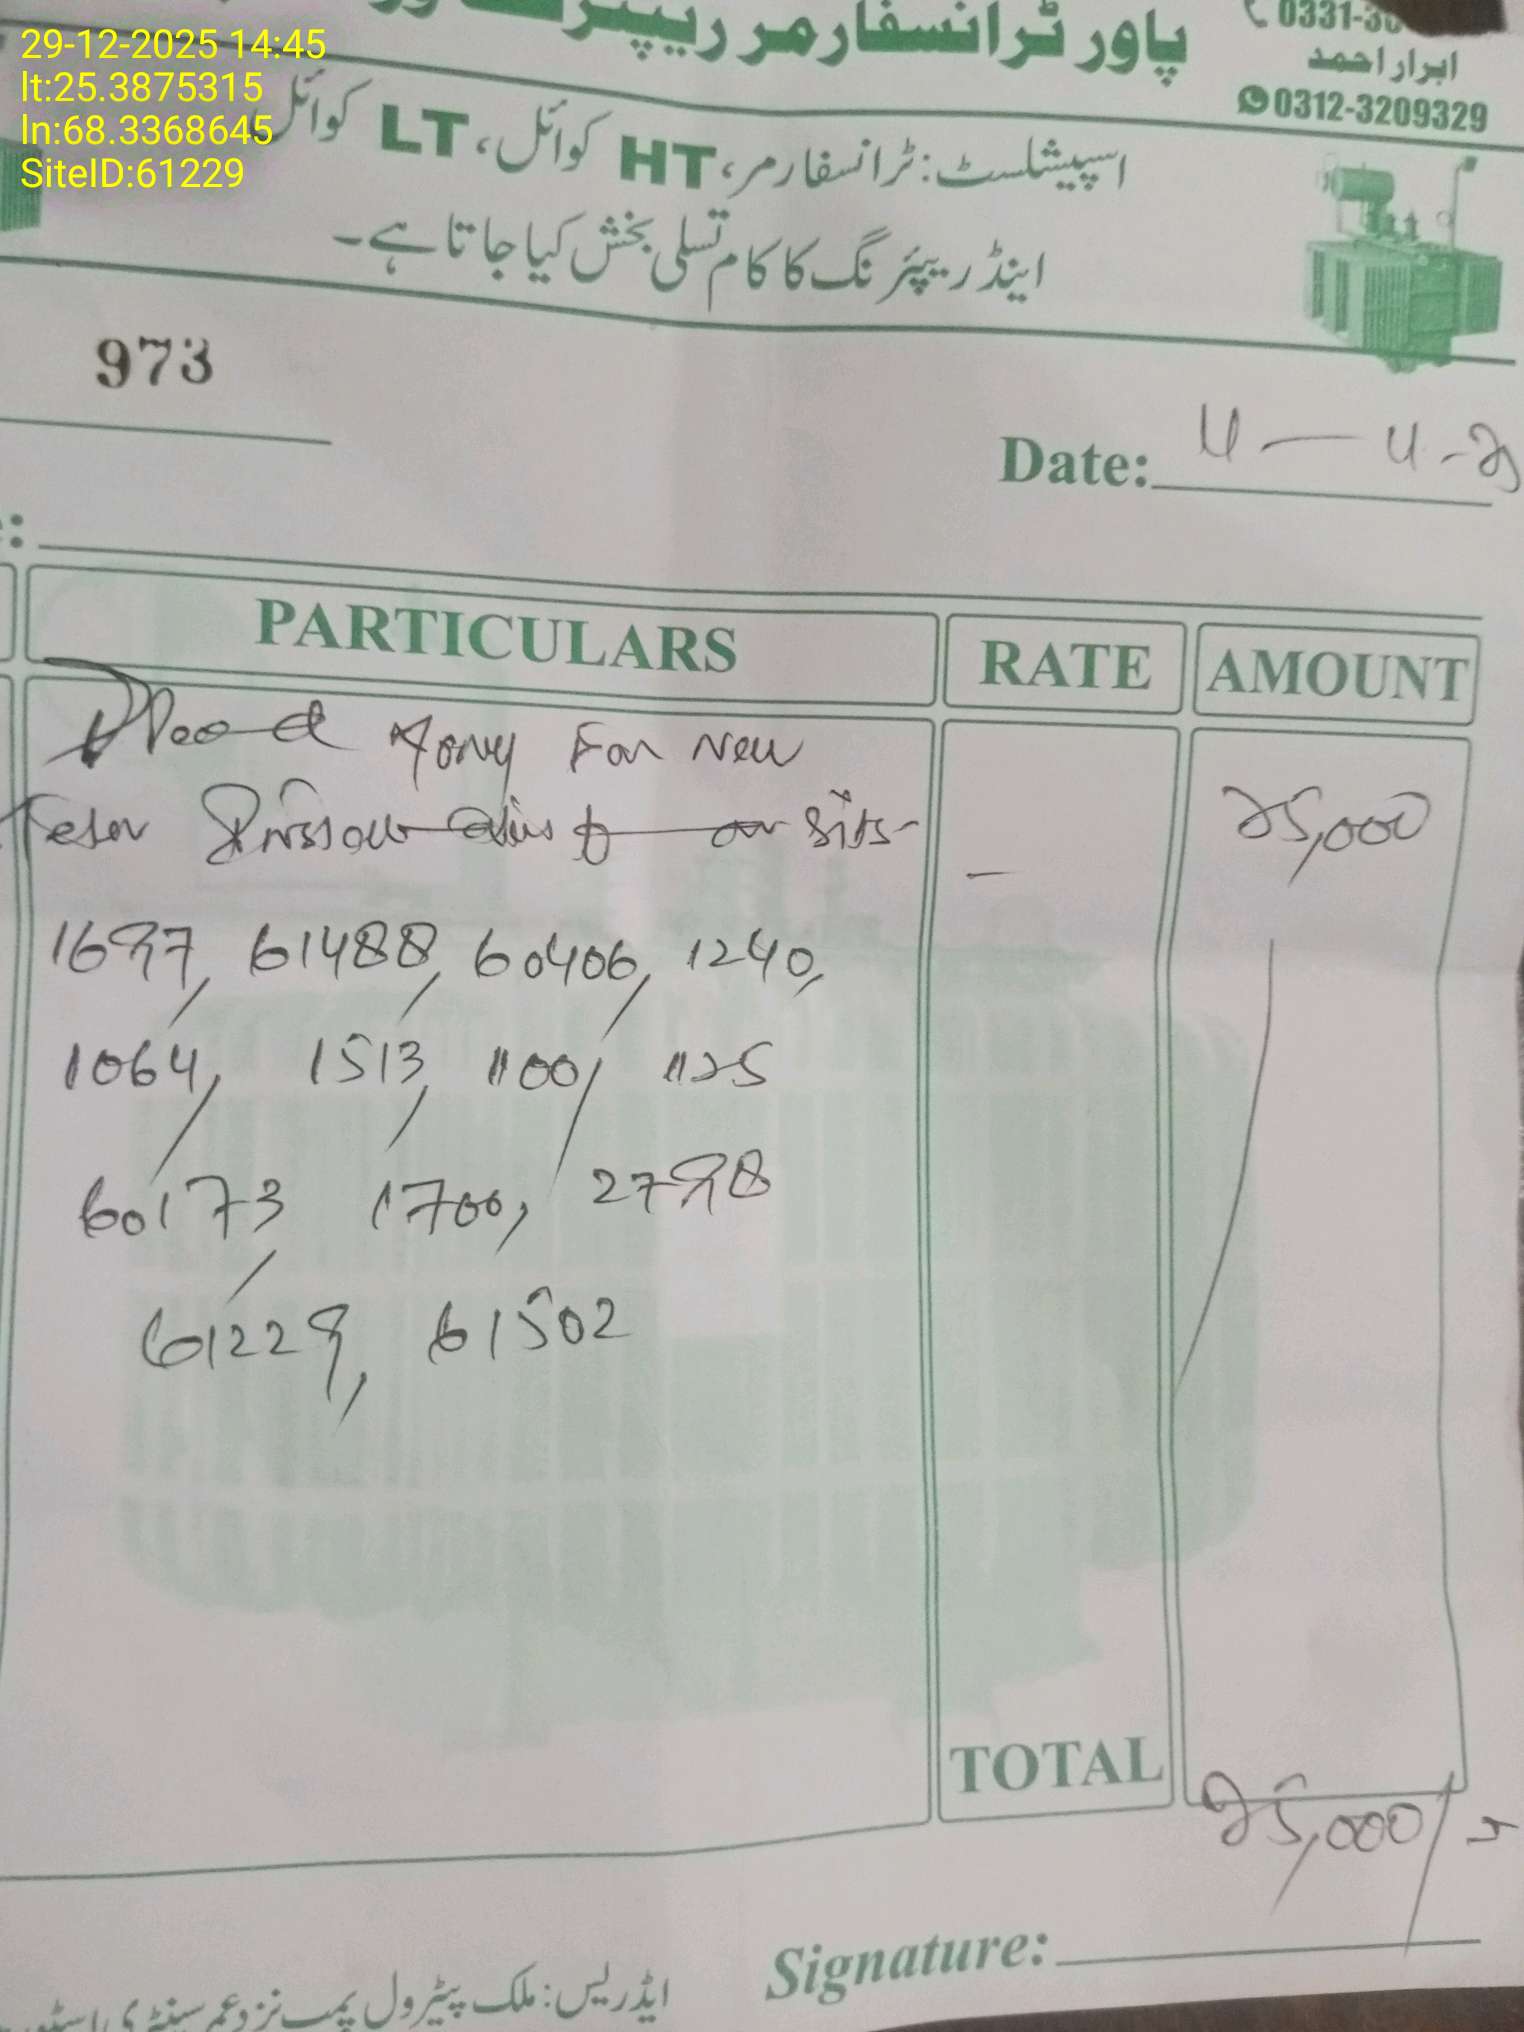 29-12-2025 14:45
lt:25.3875315
ln:68.3368645
SiteID:61229
پاور ٹرانسفارمر ریپئرنگ
0331-3
ابرار احمد
0312-3209329
اسپیشلسٹ: ٹرانسفارمر، HT کوائل، LT کوائل،
اینڈ ریپئرنگ کا کام تسلی بخش کیا جاتا ہے۔
973
Date: 4-4-25
PARTICULARS RATE AMOUNT
For New
25,000
—
1697, 61488, 60406, 1240,
1064, 1513, 1100, 1125
60173 1700, 2798
61229, 61502
TOTAL 25,000/=
Signature:
ایڈریس: ملک پیٹرول پمپ نزد عمر سینٹری اسٹور